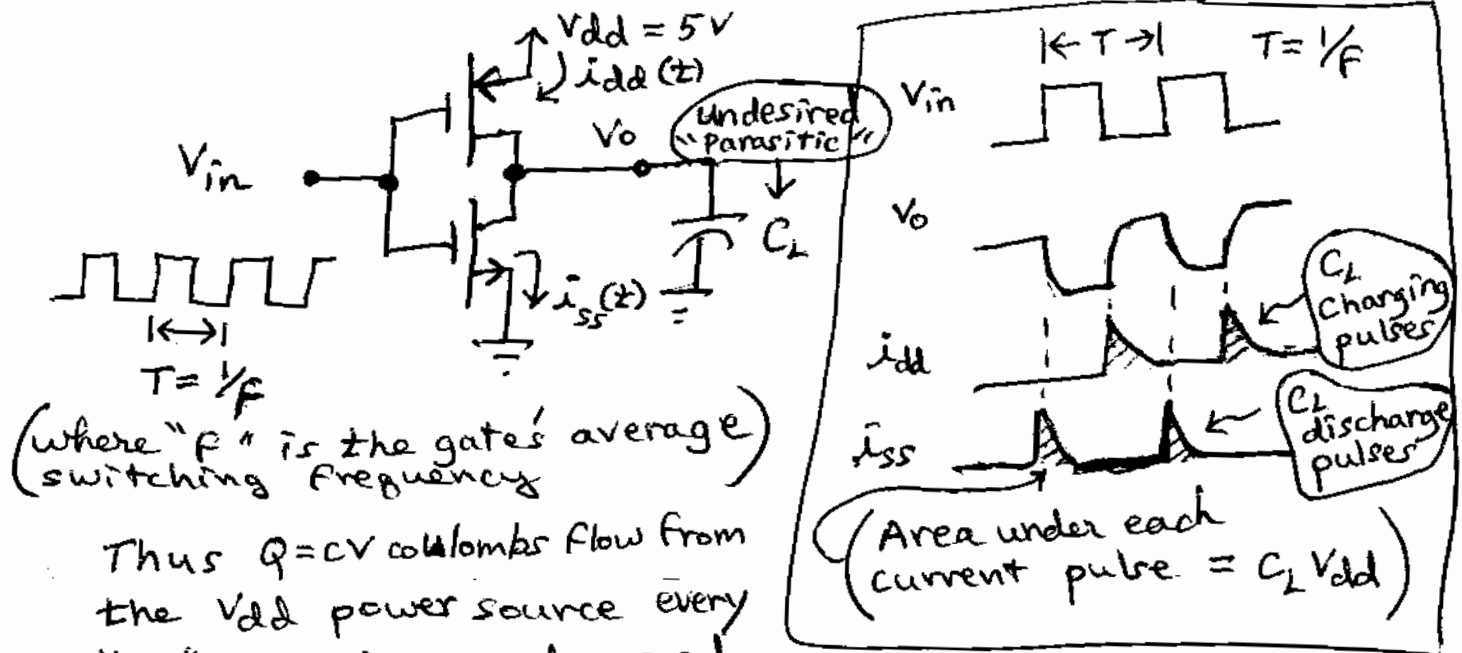 Vdd = 5V
idd(t)
Undesired
"Parasitic"
Vo
Vin
CL
iss(t)
T = 1/f
(where "f" is the gate's average
switching frequency)
Thus Q=CV coulombs flow from
the Vdd power source every
|← T →| T = 1/f
Vin
Vo
CL
Changing
pulses
idd
CL
discharge
pulses
iss
(Area under each
current pulse = CL Vdd)